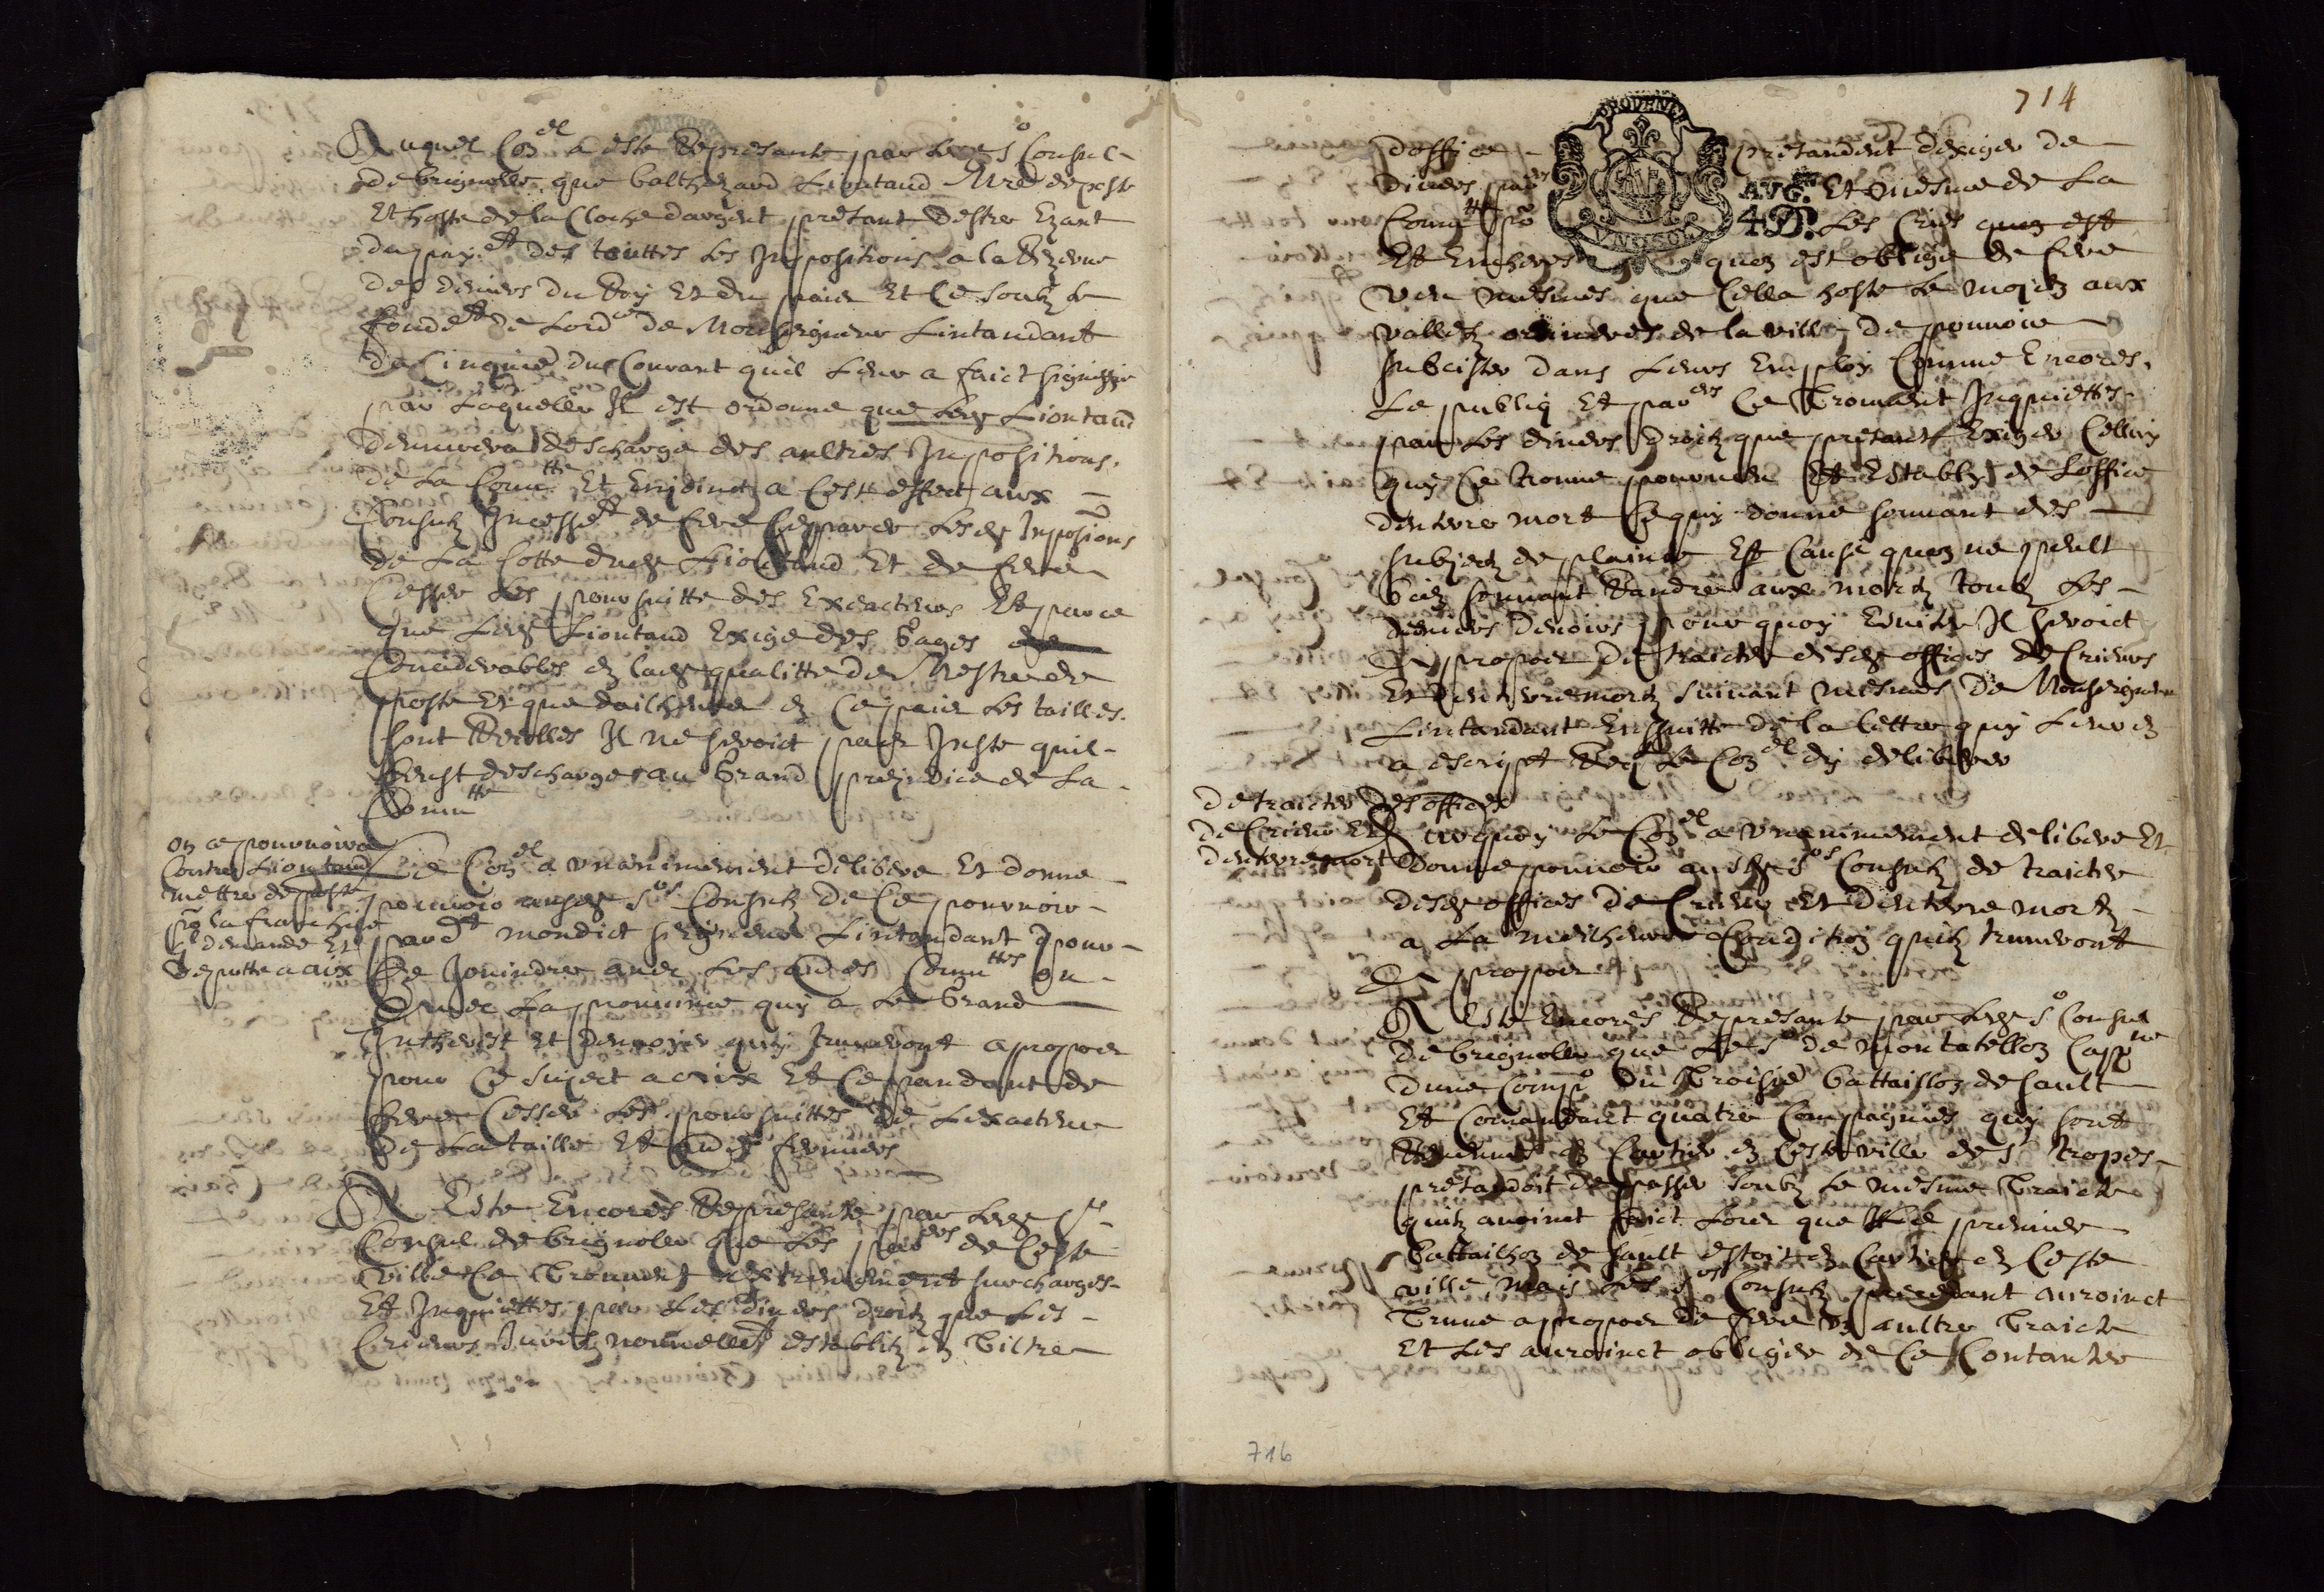 Auquel Con^el a este Represante par le s^r Consul
de brignolle que balthezard Liontaud M^re de poste
Et hoste de la Cloche dargent pretant Destre Exant
du pay^nt des touttes les Inpositions a la Rezerve
des deniers du Roy Et du pais Et Ce soubz le
fondem^t de Lord^ce de Monseigneur Lintandant
du Cinquie^e du Courant quil Leur a faict signiffie
par Laquelle Il est ordonne que led Liontaud
demurera descharge des aultres Inpositions
de La Com^tte Et Enjoinct a Cest effect aux
Consulz Incess^t de fere lesd Inpo^sions
de La Cotte dud Liontaud Et de fere
Cesser Les poursuitte des Exacteurs Et parce
que Led Liontaud Exige des Gages
Considerables en lad qualitte de Mestre de
poste Et que dailheurs en Ce pais Les tailles
sont Reelles Il ne seroit pas Juste quil
feust descharge au Grand prejudice de La
Com^tte
on ce pourvoira
Contre Liontaud
mettre de poste
la franchise
demande Et
depputte a aix
Le Con^el a unanimement delibere Et donne
pouvoir ausd S^rs Consulz de Ce pourvoir
pard^t mondict seigneur Lintandant pour
Ce Joindre avec Les aultres Comm^ttes ou
avec La province quy a Le Grand
Intherest Et denvoyer quy Jrouveront a propos
pour Ce suject a aix Et Cepandant de
fere Cesser Les poursuittes de Lexacteur
de La taille Et aud fermiers
A Este Encores Represante par led S^r
Consul de brignolle que Les par^ers de Ceste
ville Ce Treuvent Extremement surcharges
Et Inquiettes par Les divers droitz que Les
Crieurs Jurez nouvellem^t establitz en Tiltre
714
PROVENCE
AVG^on
4 D.
doffice pretandent dexiger de
divers par^ers Et mesme de La
Com^tte Les Cries quon est
Et Encheres quon est oblige de fere
veu mesmes que Cella hoste Le moyen aux
vallets ordineres de la ville de pouvoir
subcister dans Leurs Employ Comme Encores
Le publiq Et par^ers Ce Trouvent Inquiettes
par Les divers droitz que pretant Exiger Celluy
quy Ce trouve pourveu Et Establly de Loffice
denterre mort Ce quy donne souvant des
subjectz de plainte Est Cause quon ne peult
bien souvant Randre aux mortz toutz Les
derniers devoirs pour quoy Eviter Il seroit
A propos de traicter desd offices de Crieurs
Et denterremortz suivant mesmes de Monseigneur
Lintandant Ensuitte de la lettre quy Leur en
a escript Req^t Le Con^el dy deliberer
de traicter des offices
de Crieur Et
denterremort
Surquoy Le Con^el a unanimement delibere Et
donne pouvoir ausd S^rs Consulz de traicter
desd offices de Crieur Et denterre mortz
a La meilheure Condition quilz trouveront
A propos
A Este Encores Represante par led S^r Consul
de brignolle que Le S^r de montatellon Capp^ne
dune Comp^e du Troisie^e battaillon de sault
Et Comandant quatre Compagnies quy sont
en Cartier en Ceste ville de S^t tropes
pretandoit de passer soubz Le mesme Traicte
quilz avoinct faict Lors que Le premier
battailhon de sault estoit en Cartier en Ceste
ville mais Les S^rs Consulz auroinct
Treuve a propos de fere un aultre Traicte
Et Les auroinct obliger de Ce Contanter
716